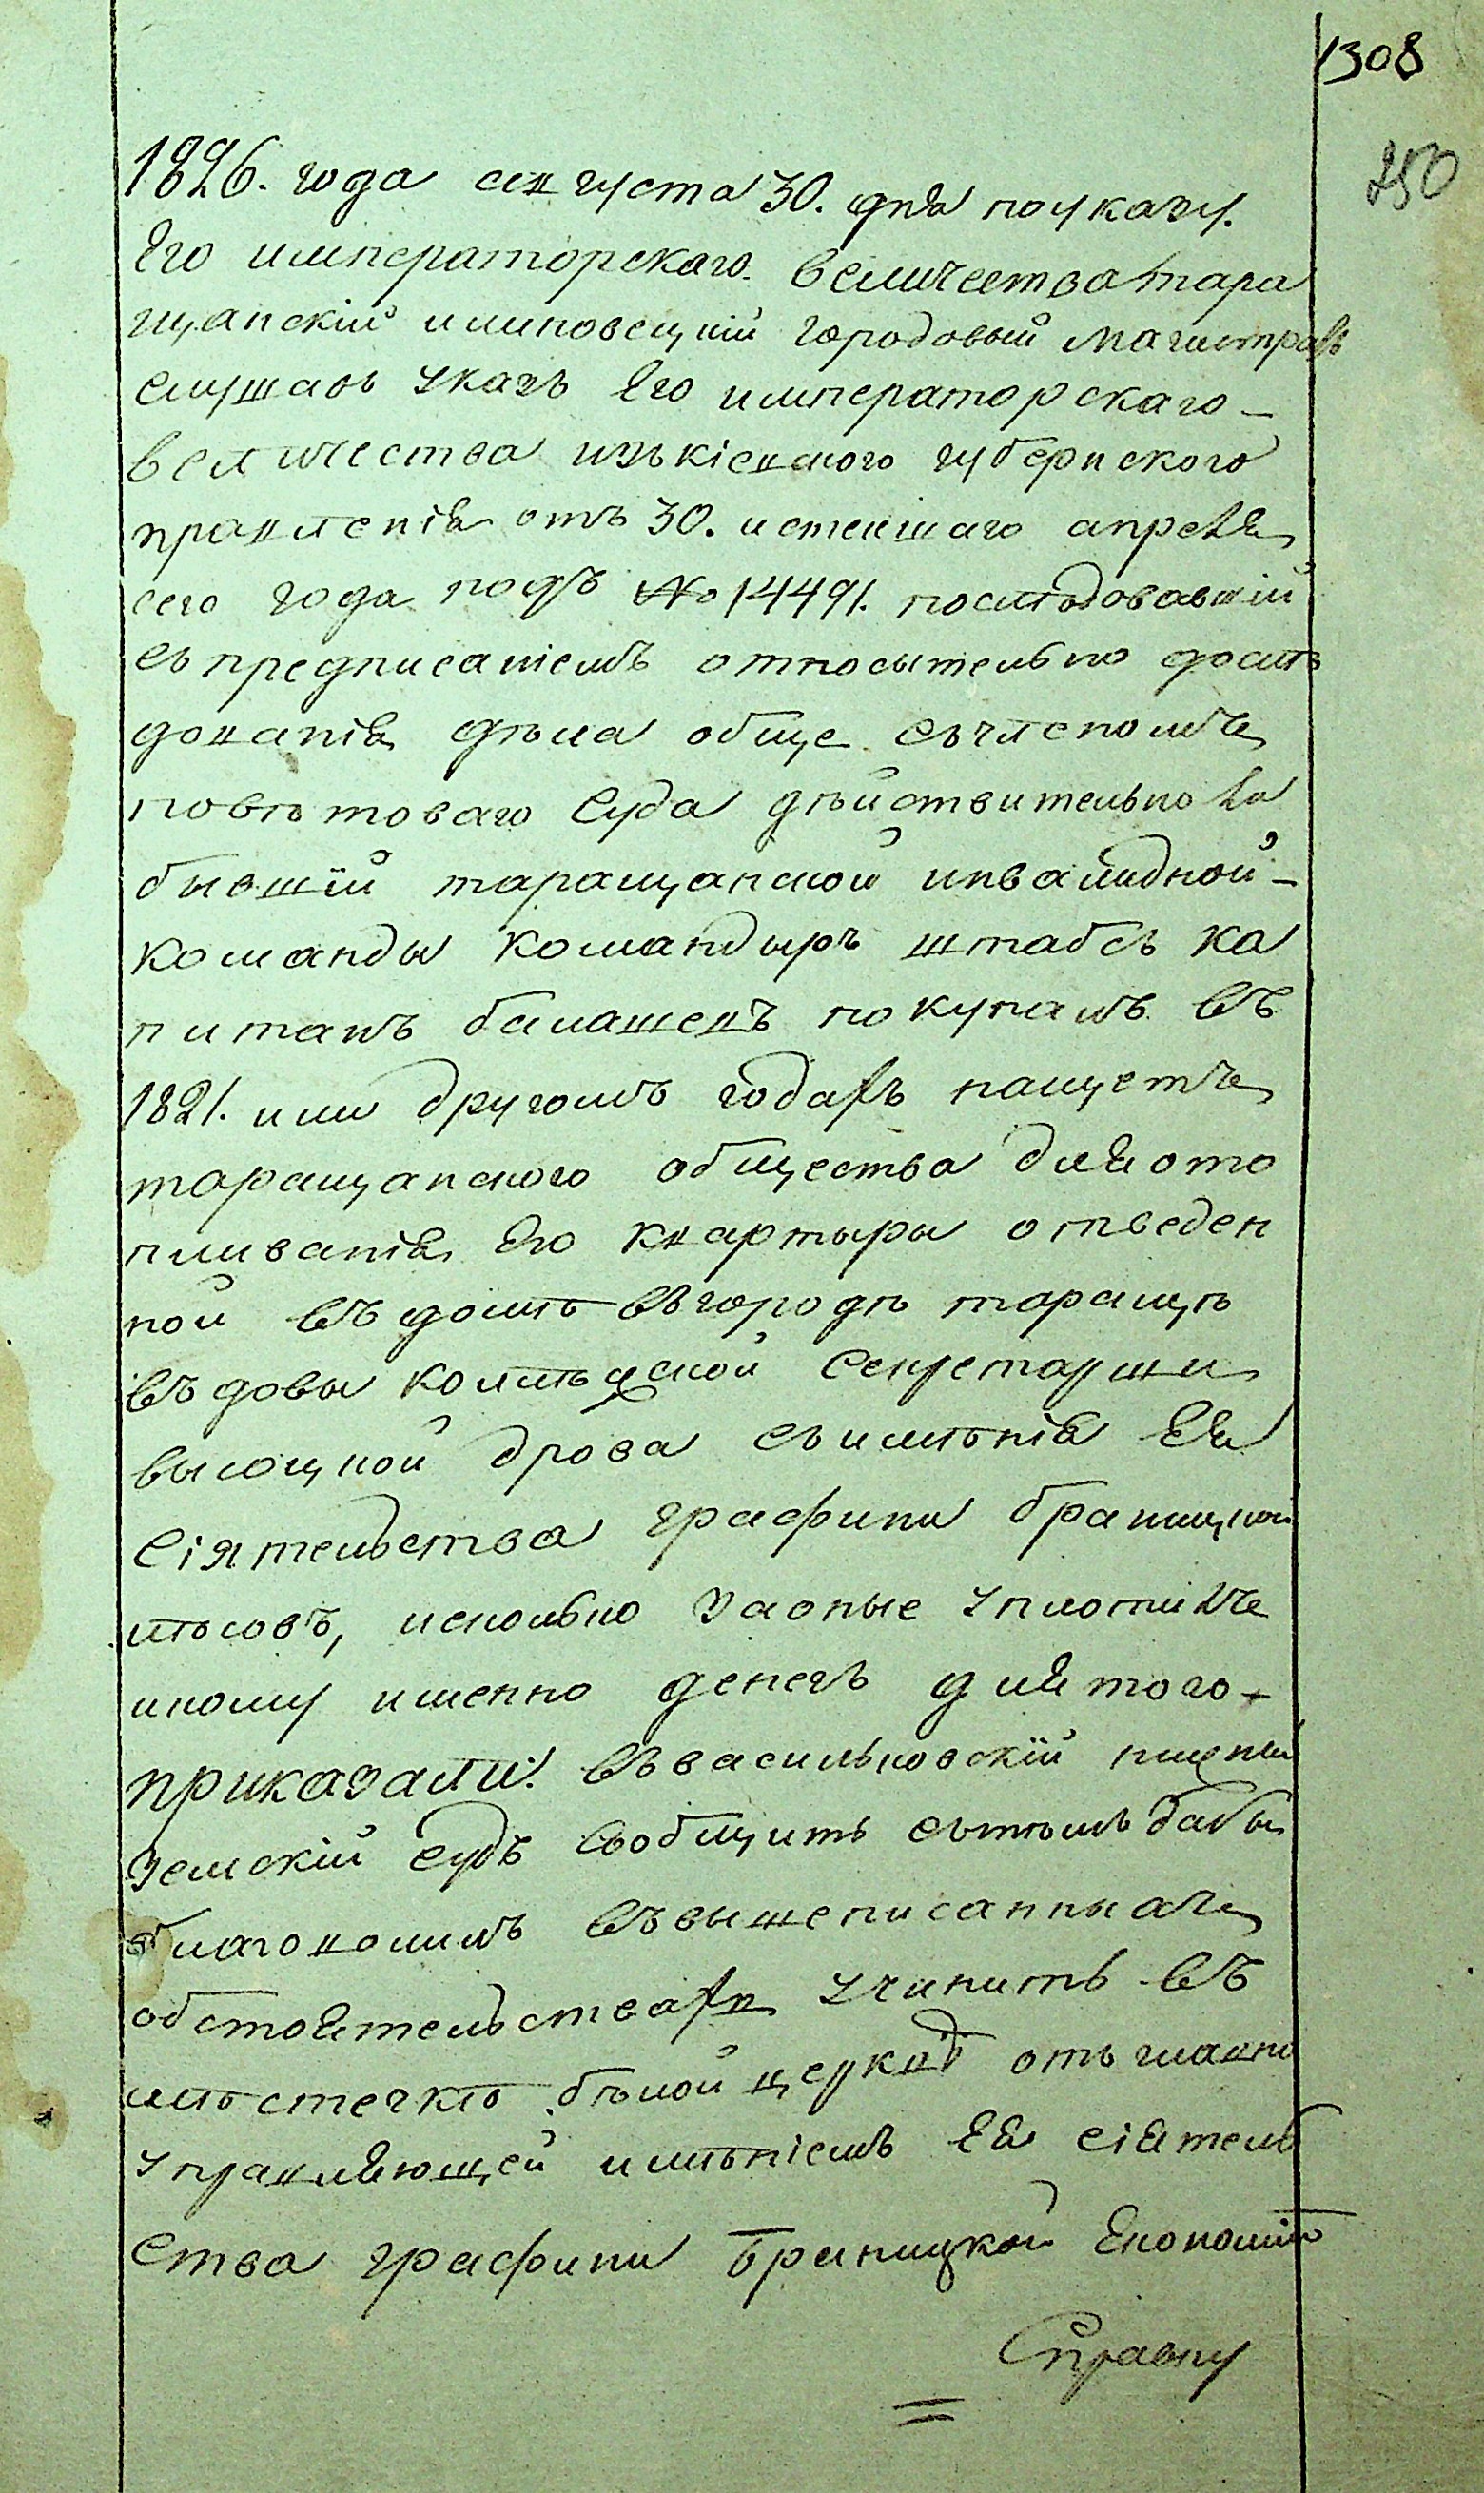 1308
250
1826. года августа 30. дня поуказу.
Его императорскаго величества тара
щанскій илиповецкій городовый магистратъ
слушавъ указъ Его императорскаго –
величества изъкіевского губернского
правленія отъ 30. истекшаго апреля
сего года подъ № 14491. последовавшій
съпредписаніемъ относытельно дослѣ
дованія дѣла обще съчленомъ
повѣтоваго Суда дѣйствительно ли
бывшій таращанской инвалидной –
команды командыръ штабсъ ка
питанъ балашевъ покупалъ въ
1821. или другомъ годахъ насчетъ
таращанского общества дляото
пливанія Его квартыры отведен
ной въ домѣ вгородѣ таращѣ
въдовы колѣжской Секретарши
высоцкой дрова съимѣнія Ея
Сіятельства графини браницкой
лѣсовъ, исколько заоные уплотилъ
икому именно денегъ длятого –
приказали: въвасильковскій нижній
земскій судъ Сообщить стѣмъ дабы
благоволилъ въвышеписанныхъ
обстоятельствахъ учинить въ
мѣстечкѣ бѣлой церквѣ отъглавно
управляющей имѣніемъ Ея сіятель
ства графини Браницкой Економіи
Справку